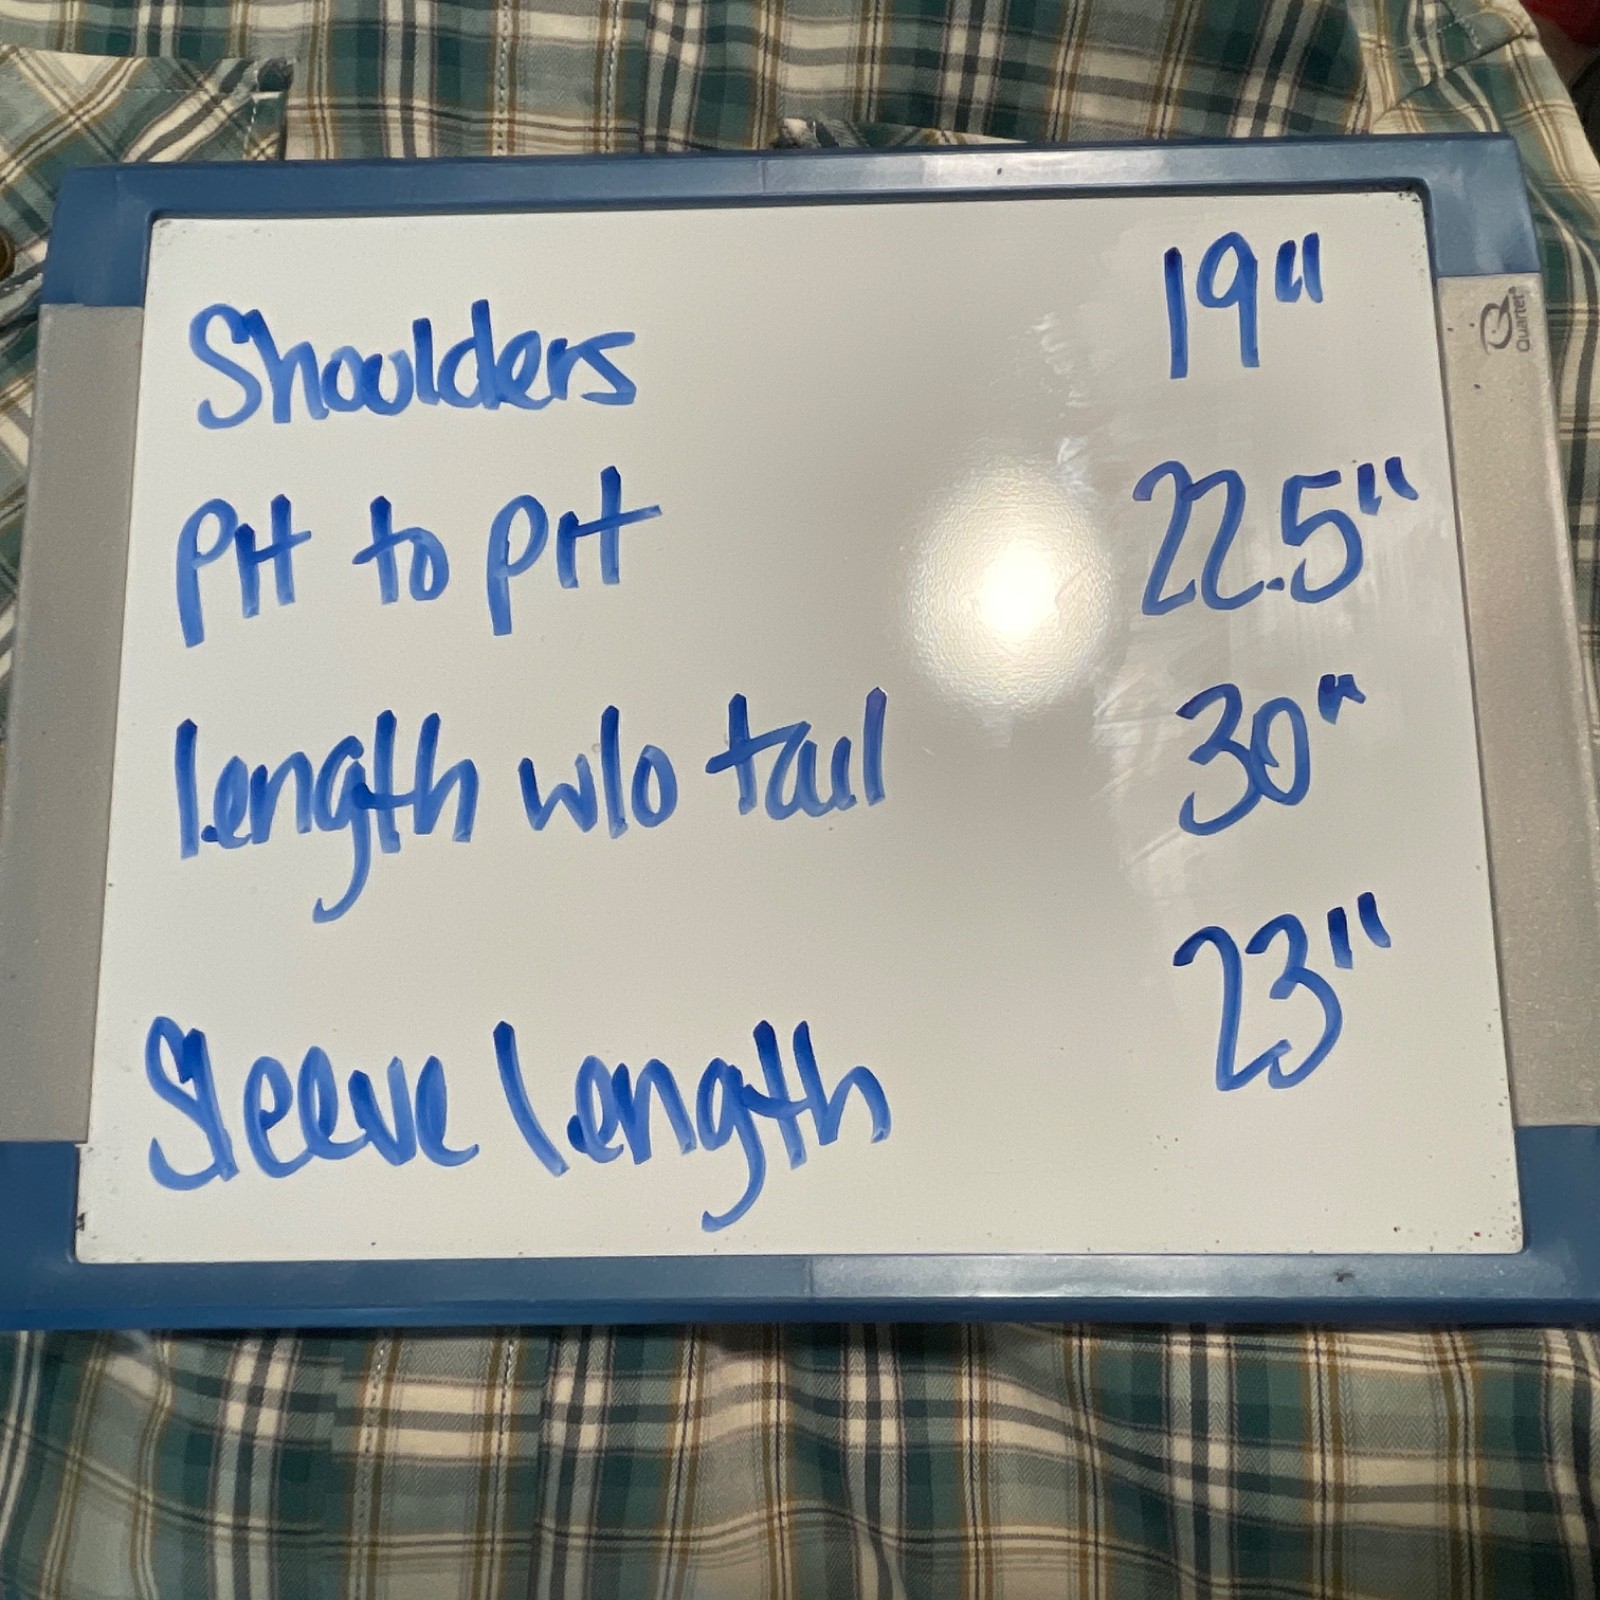 Shoulders 19"
Pit to pit 22.5"
length w/o tail 30"
Sleeve length 23"
Quartet